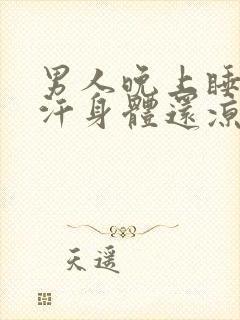 男人晚上睡
汗身體還涼
天遥